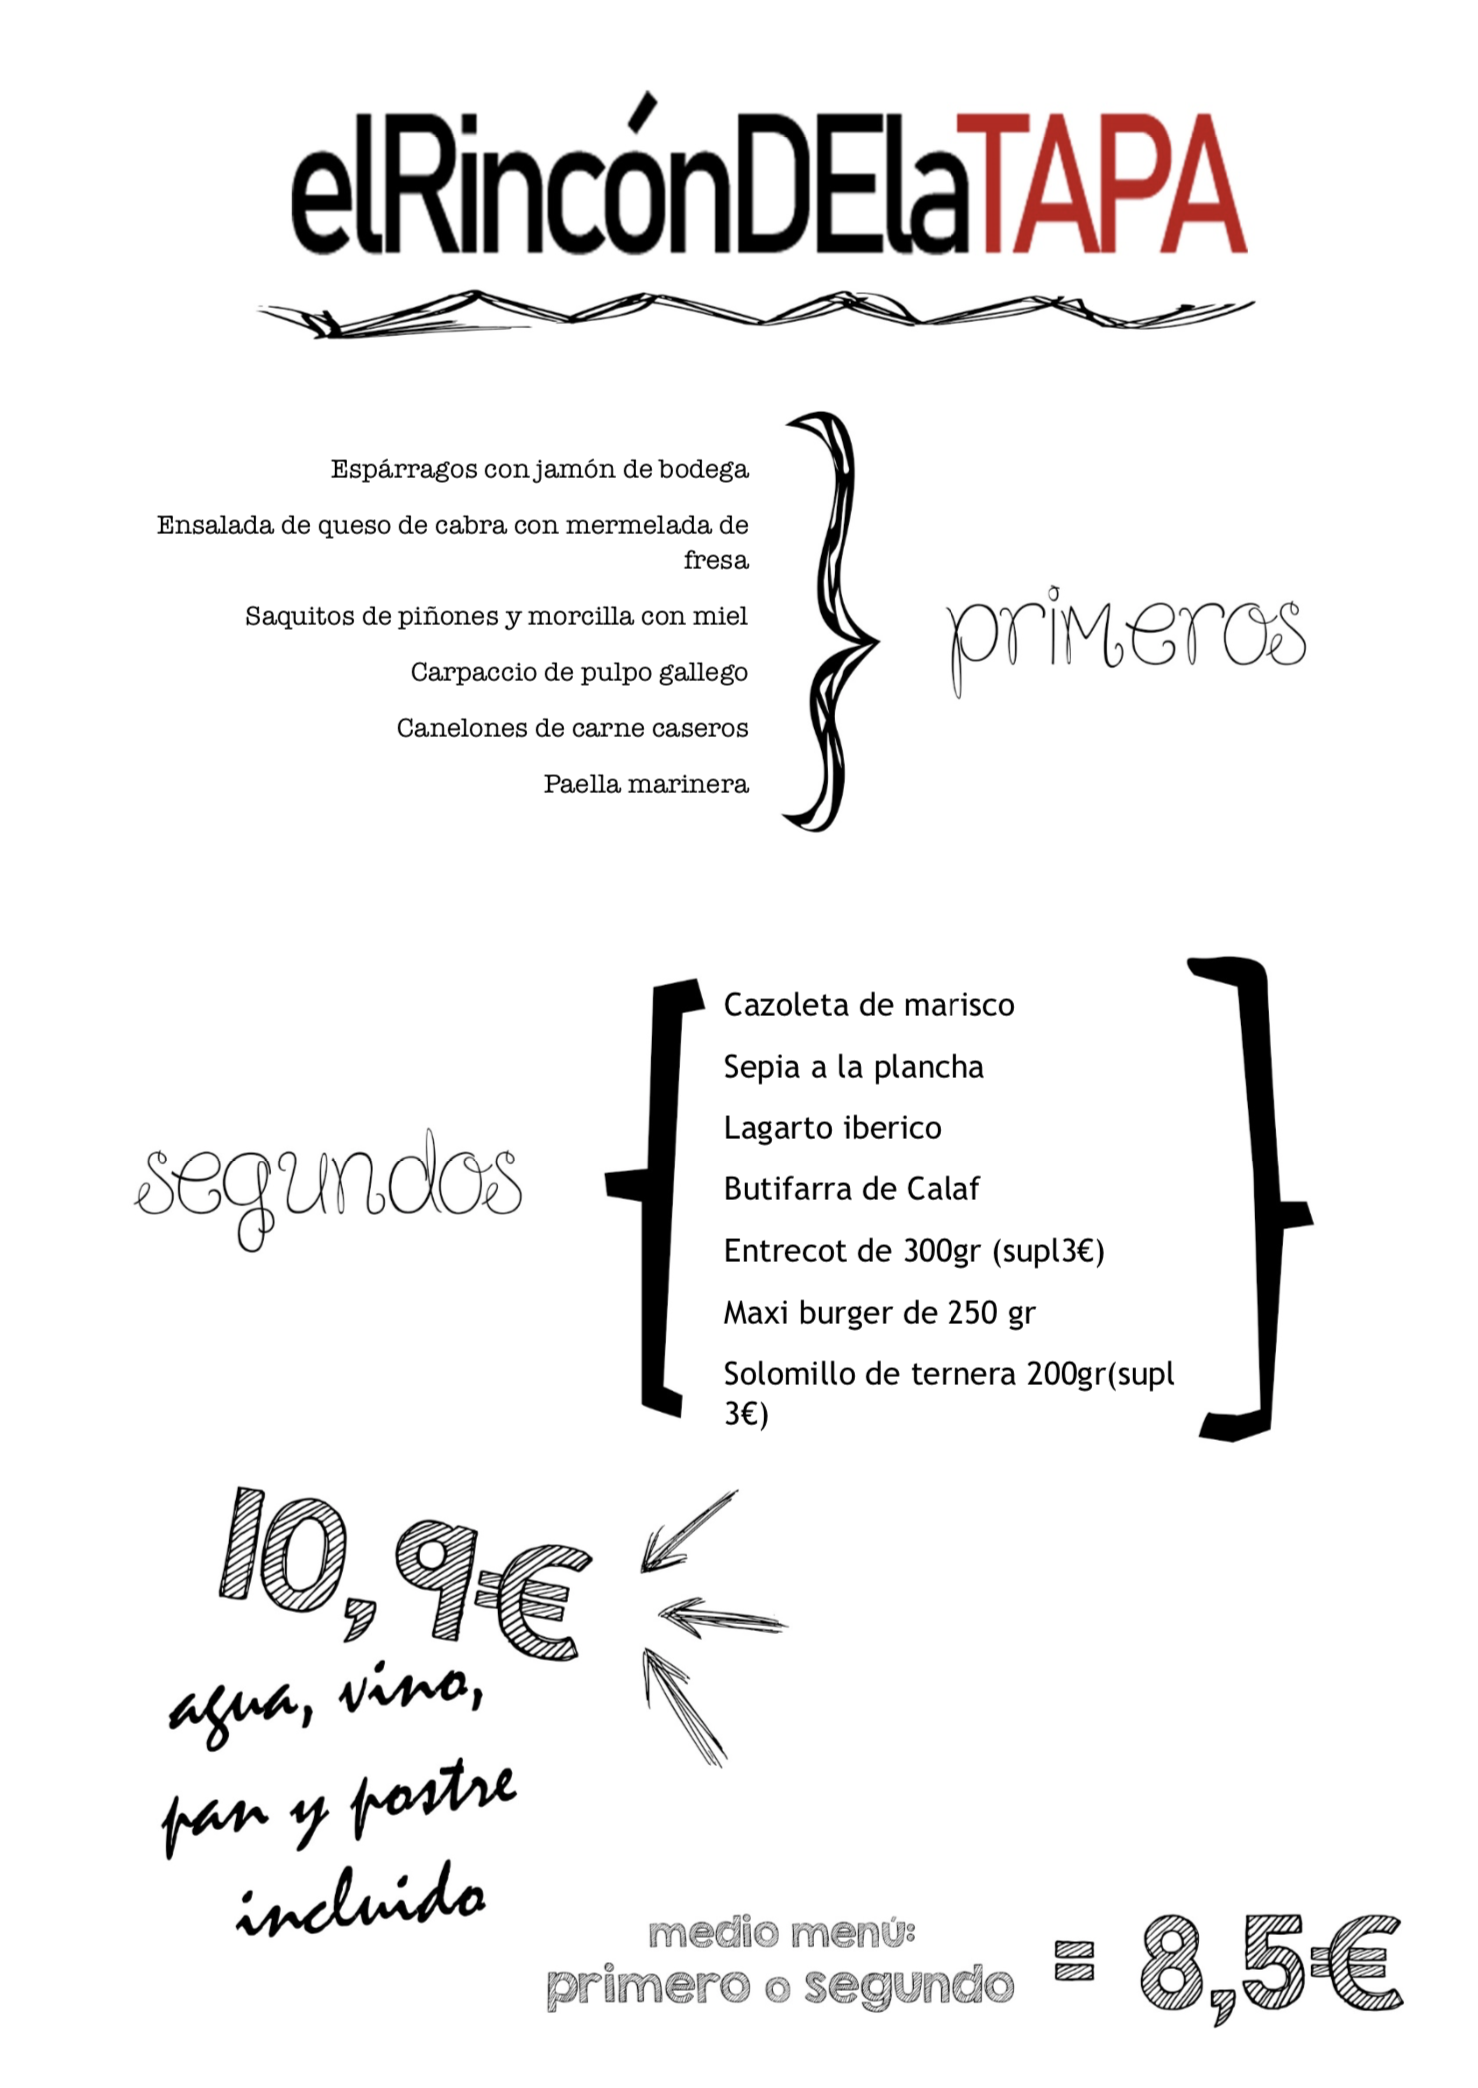 elRincónDElaTAPA
Espárragos con jamón de bodega
Ensalada de queso de cabra con mermelada de
fresa
Saquitos de piñones y morcilla con miel
Carpaccio de pulpo gallego
Canelones de carne caseros
Paella marinera
primeros
segundos
Cazoleta de marisco
Sepia a la plancha
Lagarto iberico
Butifarra de Calaf
Entrecot de 300gr (supl3€)
Maxi burger de 250 gr
Solomillo de ternera 200gr(supl
3€)
10,9€
agua, vino,
pan y postre
incluido
medio menú:
primero o segundo = 8,5€